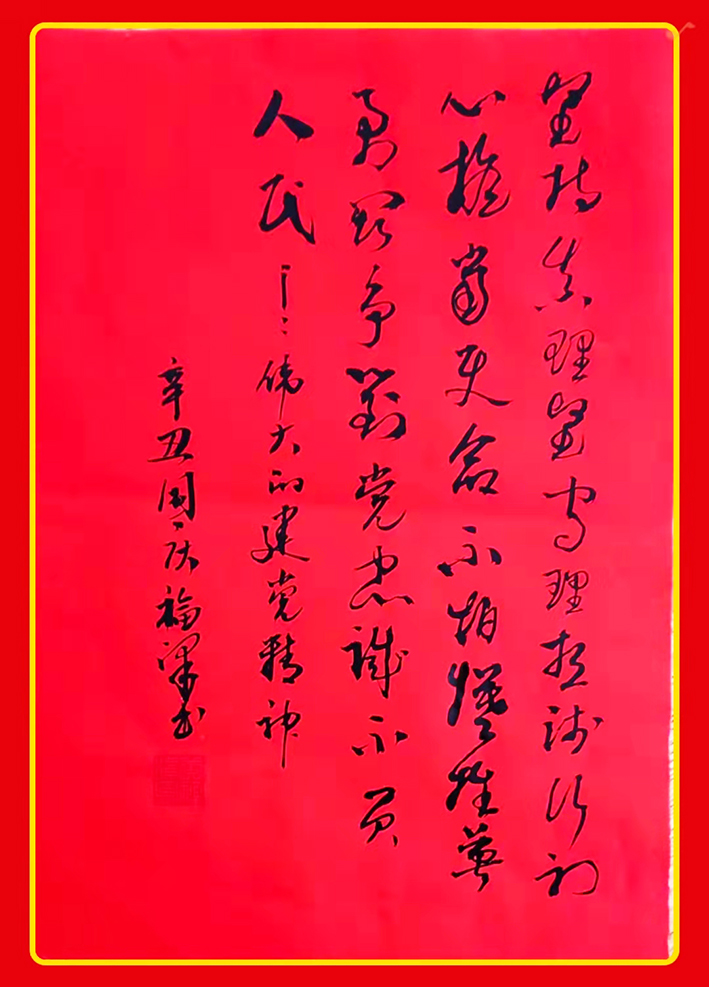 坚持真理坚守理想践行初
心担當使命不怕犧牲英
勇鬥争對党忠誠不负
人民——伟大的建党精神
辛丑国庆福书